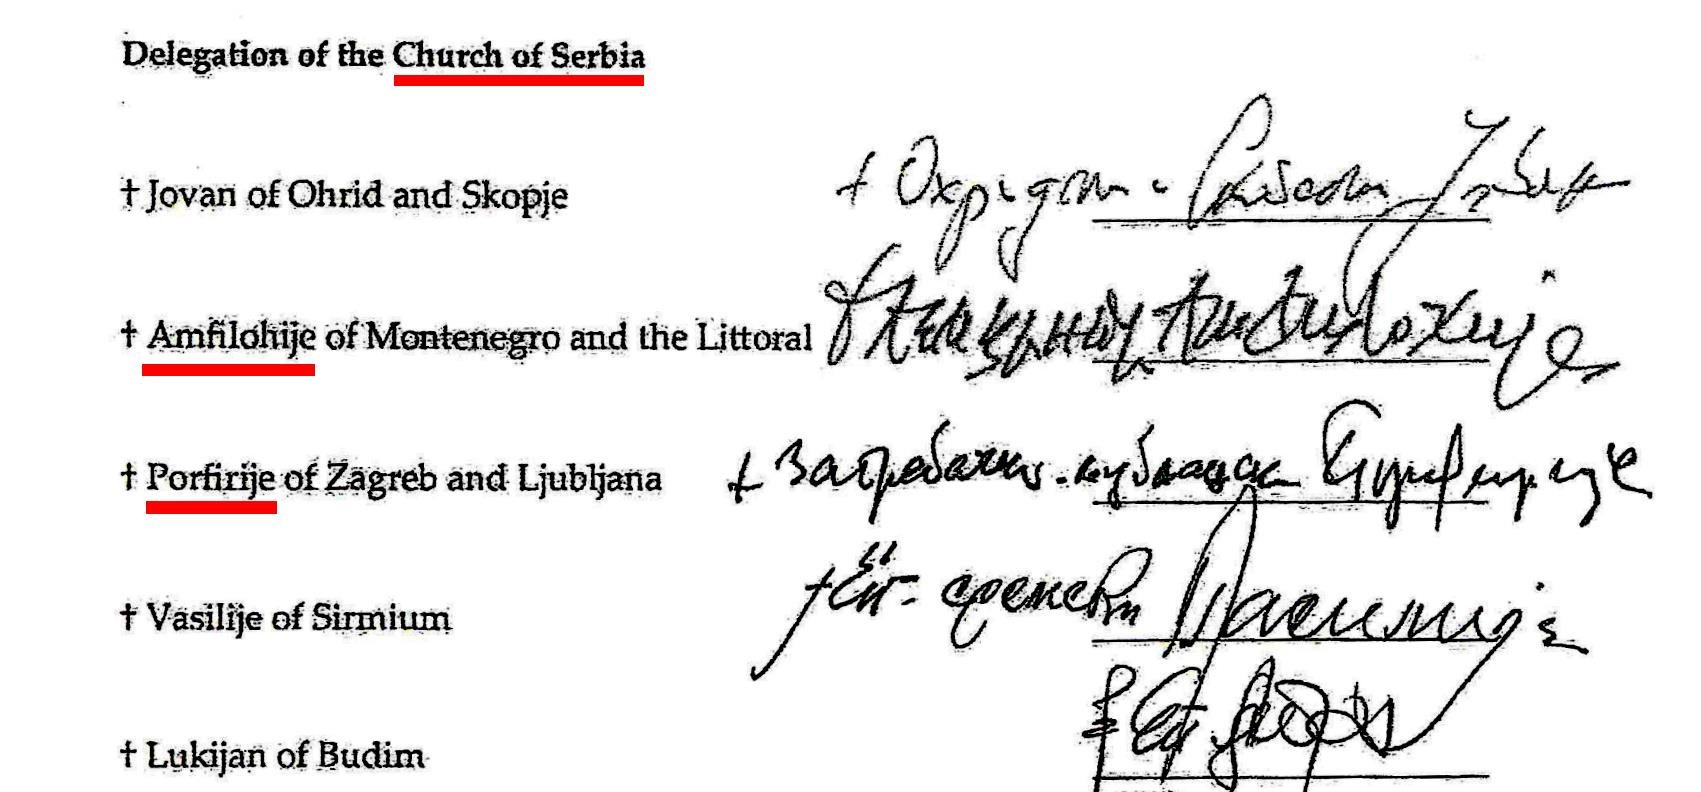 Delegation of the Church of Serbia
† Jovan of Ohrid and Skopje
† Amfilohije of Montenegro and the Littoral † Амфилохије
† Porfirije of Zagreb and Ljubljana † Загребачко-љубљански Порфирије
† Vasilije of Sirmium † Еп. сремски Василије
† Lukijan of Budim